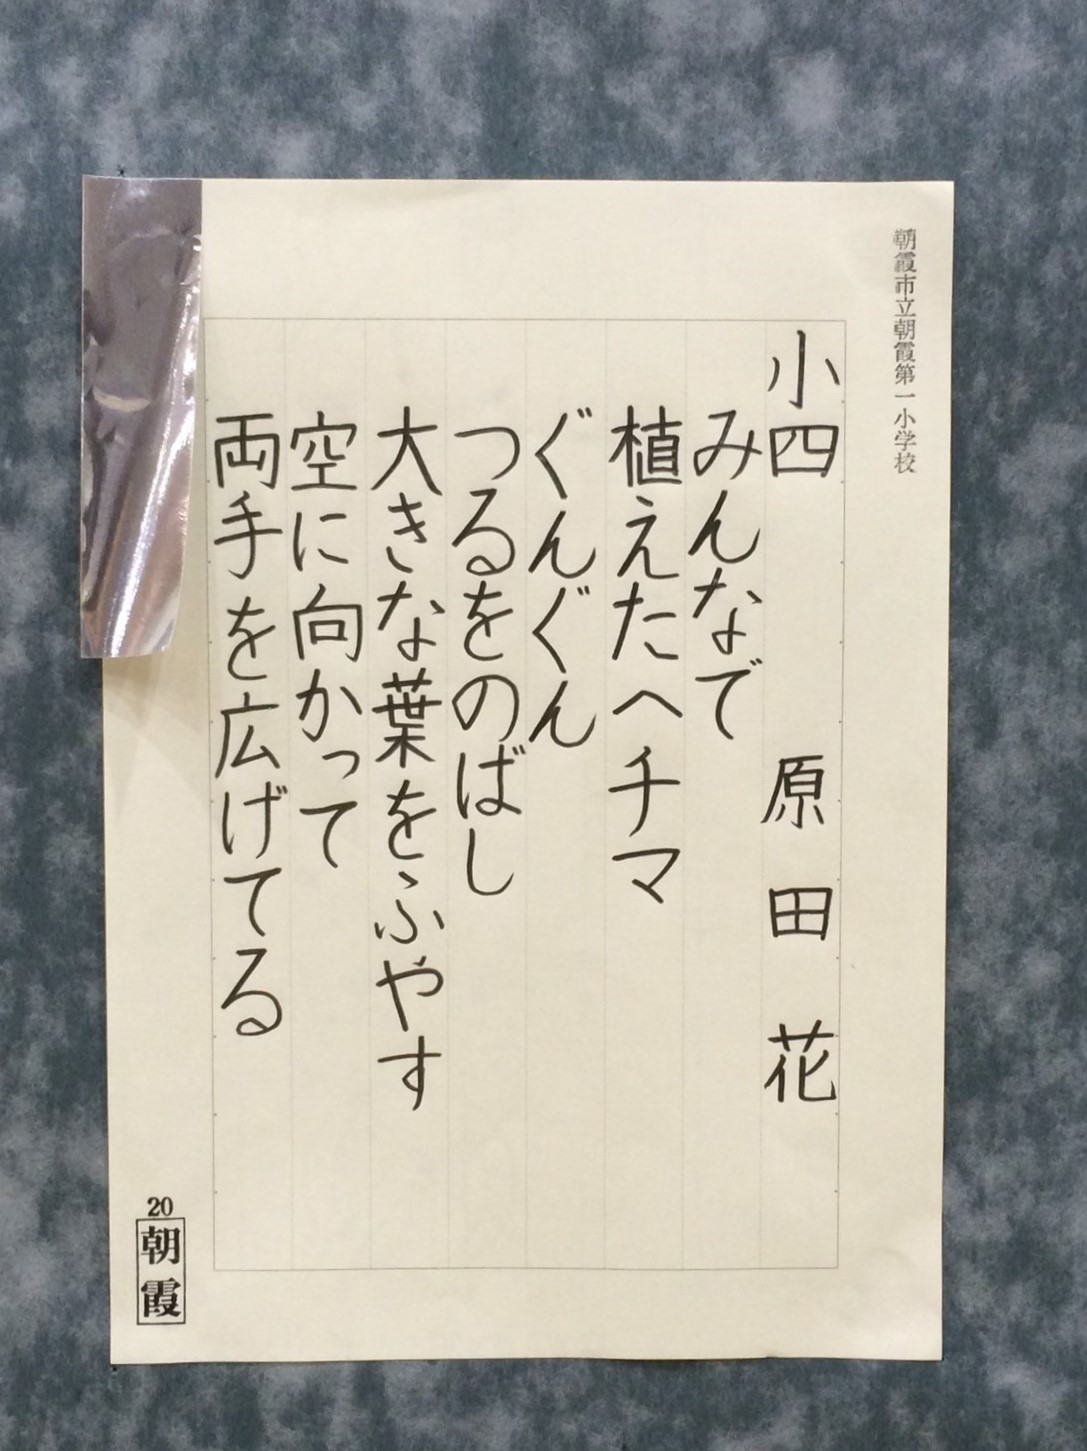 朝霞市立朝霞第一小学校
小四　原田花
みんなで
植えたヘチマ
ぐんぐん
つるをのばし
大きな葉をふやす
空に向かって
両手を広げてる
20
朝霞